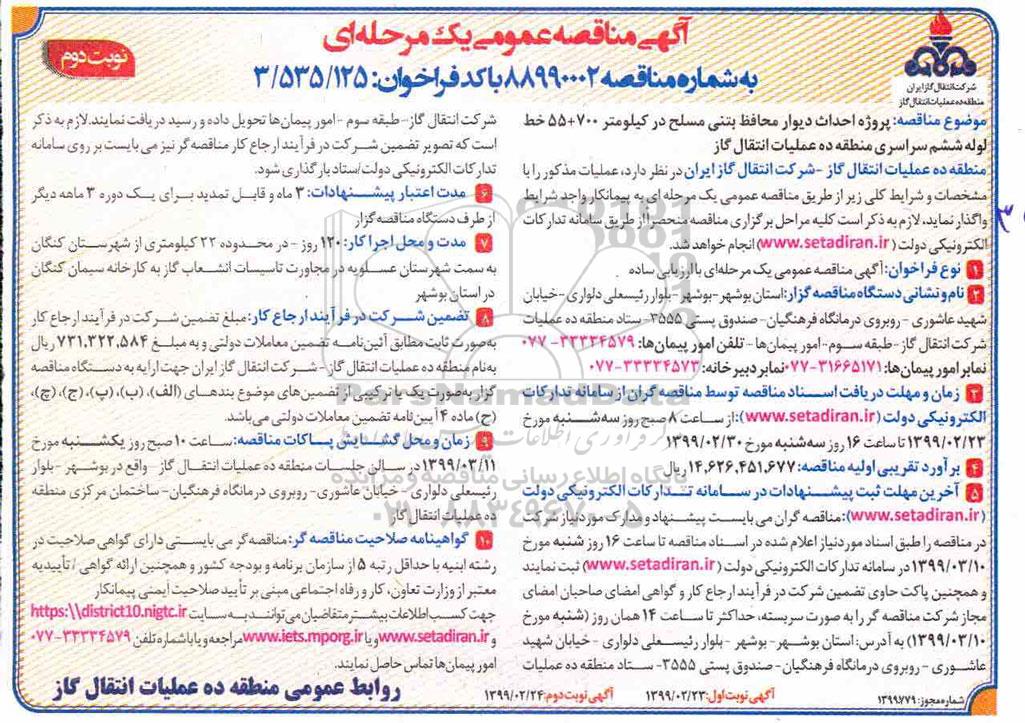 آگهی مناقصه عمومی یک مرحله‌ای
به شماره مناقصه ۸۸۹۹۰۰۰۲ با کد فراخوان: ۳/۵۳۵/۱۲۵
نوبت دوم
شرکت انتقال گاز ایران
منطقه ده عملیات انتقال گاز
موضوع مناقصه: پروژه احداث دیوار محافظ بتنی مسلح در کیلومتر ۷۰۰+۵۵ خط
لوله ششم سراسری منطقه ده عملیات انتقال گاز
منطقه ده عملیات انتقال گاز -شرکت انتقال گاز ایران در نظر دارد، عملیات مذکور را با
مشخصات و شرایط کلی زیر از طریق مناقصه عمومی یک مرحله ای به پیمانکار واجد شرایط
واگذار نماید، لازم به ذکر است کلیه مراحل برگزاری مناقصه منحصراً از طریق سامانه تدارکات
الکترونیکی دولت (www.setadiran.ir) انجام خواهد شد.
۱ نوع فراخوان: آگهی مناقصه عمومی یک مرحله‌ای با ارزیابی ساده
۲ نام و نشانی دستگاه مناقصه گزار: استان بوشهر-بوشهر-بلوار رئیسعلی دلواری-خیابان
شهید عاشوری - روبروی درمانگاه فرهنگیان- صندوق پستی ۳۵۵۵- ستاد منطقه ده عملیات
شرکت انتقال گاز -طبقه سوم-امور پیمان‌ها - تلفن امور پیمان‌ها: ۳۳۳۳۴۵۷۹-۰۷۷
نمابر امور پیمان‌ها: ۳۱۶۶۵۱۷۱-۰۷۷ نمابر دبیرخانه: ۳۳۳۳۴۵۷۳-۰۷۷
۳ زمان و مهلت دریافت اسناد مناقصه توسط مناقصه گران از سامانه تدارکات
الکترونیکی دولت (www.setadiran.ir): از ساعت ۸ صبح روز سه‌شنبه مورخ
۱۳۹۹/۰۲/۲۳ تا ساعت ۱۶ روز سه‌شنبه مورخ ۱۳۹۹/۰۲/۳۰
۴ برآورد تقریبی اولیه مناقصه: ۱۴,۶۲۶,۴۵۱,۶۷۷ ریال
۵ آخرین مهلت ثبت پیشنهادات در سامانه تدارکات الکترونیکی دولت
(www.setadiran.ir): مناقصه گران می بایست پیشنهاد و مدارک مورد نیاز شرکت
در مناقصه را طبق اسناد مورد نیاز اعلام شده در اسناد مناقصه تا ساعت ۱۶ روز شنبه مورخ
۱۳۹۹/۰۳/۱۰ در سامانه تدارکات الکترونیکی دولت (www.setadiran.ir) ثبت نمایند
و همچنین پاکت حاوی تضمین شرکت در فرآیند ارجاع کار و گواهی امضای صاحبان امضای
مجاز شرکت مناقصه گر را به صورت سربسته، حداکثر تا ساعت ۱۴ همان روز (شنبه مورخ
۱۳۹۹/۰۳/۱۰) به آدرس: استان بوشهر- بوشهر -بلوار رئیسعلی دلواری - خیابان شهید
عاشوری - روبروی درمانگاه فرهنگیان- صندوق پستی ۳۵۵۵- ستاد منطقه ده عملیات
شرکت انتقال گاز- طبقه سوم -امور پیمان‌ها تحویل داده و رسید دریافت نمایند. لازم به ذکر
است که تصویر تضمین شرکت در فرآیند ارجاع کار مناقصه گر نیز می بایست بر روی سامانه
تدارکات الکترونیکی دولت/ستاد بارگذاری شود.
۶ مدت اعتبار پیشنهادات: ۳ ماه و قابل تمدید برای یک دوره ۳ ماهه دیگر
از طرف دستگاه مناقصه گزار
۷ مدت و محل اجرا کار: ۱۲۰ روز - در محدوده ۲۲ کیلومتری از شهرستان کنگان
به سمت شهرستان عسلویه در مجاورت تاسیسات انشعاب گاز به کارخانه سیمان کنگان
در استان بوشهر
۸ تضمین شرکت در فرآیند ارجاع کار: مبلغ تضمین شرکت در فرآیند ارجاع کار
به صورت ثابت مطابق آئین‌نامه تضمین معاملات دولتی و به مبلغ ۷۳۱,۳۲۲,۵۸۴ ریال
به نام منطقه ده عملیات انتقال گاز - شرکت انتقال گاز ایران جهت ارایه به دستگاه مناقصه
گزار به صورت یک یا ترکیبی از تضمین‌های موضوع بندهای (الف)، (ب)، (پ)، (ج)، (چ)،
(ح) ماده ۴ آیین‌نامه تضمین معاملات دولتی می‌باشد.
۹ زمان و محل گشایش پاکات مناقصه: ساعت ۱۰ صبح روز یکشنبه مورخ
۱۳۹۹/۰۳/۱۱ در سالن جلسات منطقه ده عملیات انتقال گاز - واقع در بوشهر -بلوار
رئیسعلی دلواری - خیابان عاشوری- روبروی درمانگاه فرهنگیان- ساختمان مرکزی منطقه
ده عملیات انتقال گاز
۱۰ گواهینامه صلاحیت مناقصه گر: مناقصه‌گر می بایستی دارای گواهی صلاحیت در
رشته ابنیه با حداقل رتبه ۵ از سازمان برنامه و بودجه کشور و همچنین ارائه گواهی / تأییدیه
معتبر از وزارت تعاون، کار و رفاه اجتماعی مبنی بر تأیید صلاحیت ایمنی پیمانکار
جهت کسب اطلاعات بیشتر متقاضیان می‌توانند به سایت https:\\district10.nigtc.ir
و www.setadiran.ir و یا www.iets.mporg.ir مراجعه و یا با شماره تلفن ۳۳۳۳۴۵۷۹-۰۷۷
امور پیمان‌ها تماس حاصل نمایند.
روابط عمومی منطقه ده عملیات انتقال گاز
آگهی نوبت اول: ۱۳۹۹/۰۲/۲۳ آگهی نوبت دوم: ۱۳۹۹/۰۲/۲۴
شماره مجوز: ۱۳۹۹.۷۷۹
ParsNamadData
پایگاه اطلاع رسانی مناقصه و مزایده